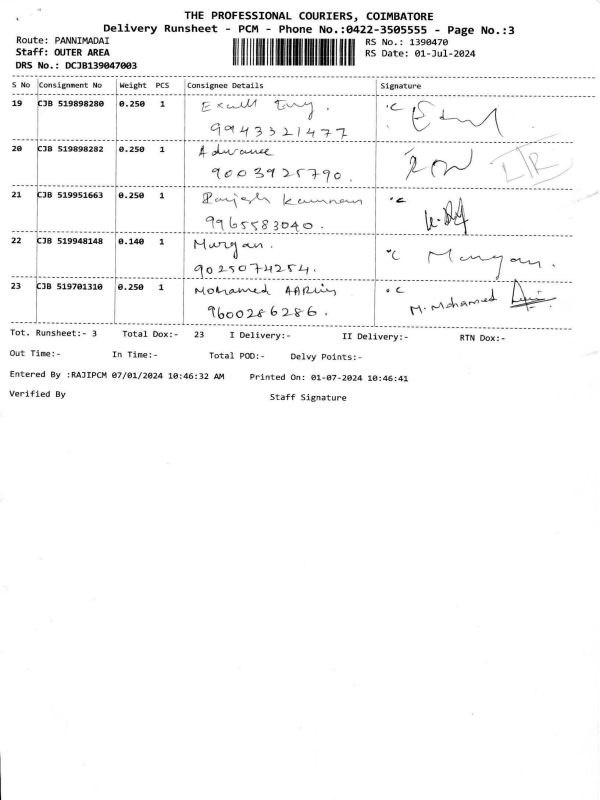 THE PROFESSIONAL COURIERS, COIMBATORE
Delivery Runsheet - PCM - Phone No.:0422-3505555 - Page No.:3
Route: PANNIMADAI
Staff: OUTER AREA
DRS No.: DCJB139047003
RS No.: 1390470
RS Date: 01-Jul-2024
S No Consignment No Weight PCS Consignee Details Signature
19 CJB 519898280 0.250 1
9943321477
20 CJB 519898282 0.250 1 Advance
9003925790.
21 CJB 519951663 0.250 1 Ranjesh Kannan °C
9965583040.
22 CJB 519948148 0.140 1 Murgan. °C Murgan.
9025074254.
23 CJB 519701310 0.250 1 Mohamed °C
9600286286. M. Mohamed
Tot. Runsheet:- 3 Total Dox:- 23 I Delivery:- II Delivery:- RTN Dox:-
Out Time:- In Time:- Total POD:- Delvy Points:-
Entered By :RAJIPCM 07/01/2024 10:46:32 AM Printed On: 01-07-2024 10:46:41
Verified By Staff Signature